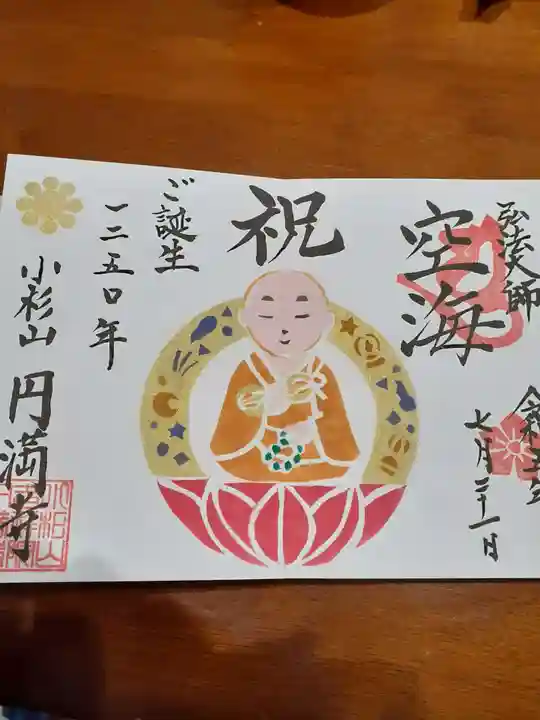 弘法大師
空海
祝
ご誕生
一二五〇年
小杉山
円満寺
令和五年
七月三十一日